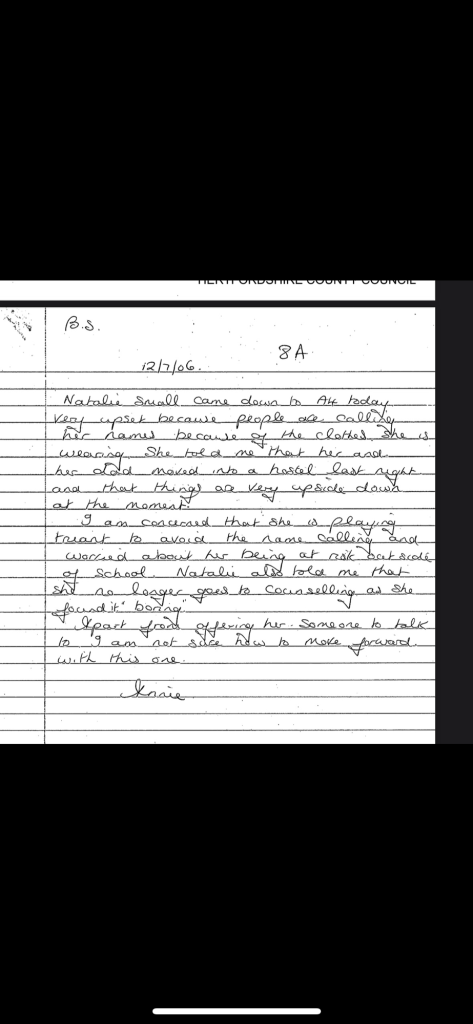 HERTFORDSHIRE COUNTY COUNCIL
B.S.
8A
12/7/06.
Natalie Small came down to A4 today
very upset because people are calling
her names because of the clothes she is
wearing. She told me that her and
her dad moved into a hostel last night
and that things are very upside down
at the moment.
I am concerned that she is playing
truant to avoid the name calling and
worried about her being at risk outside
of School. Natalie also told me that
she no longer goes to Counselling as she
found it "boring"
Apart from offering her someone to talk
to I am not sure how to move forward
with this one.
Annie